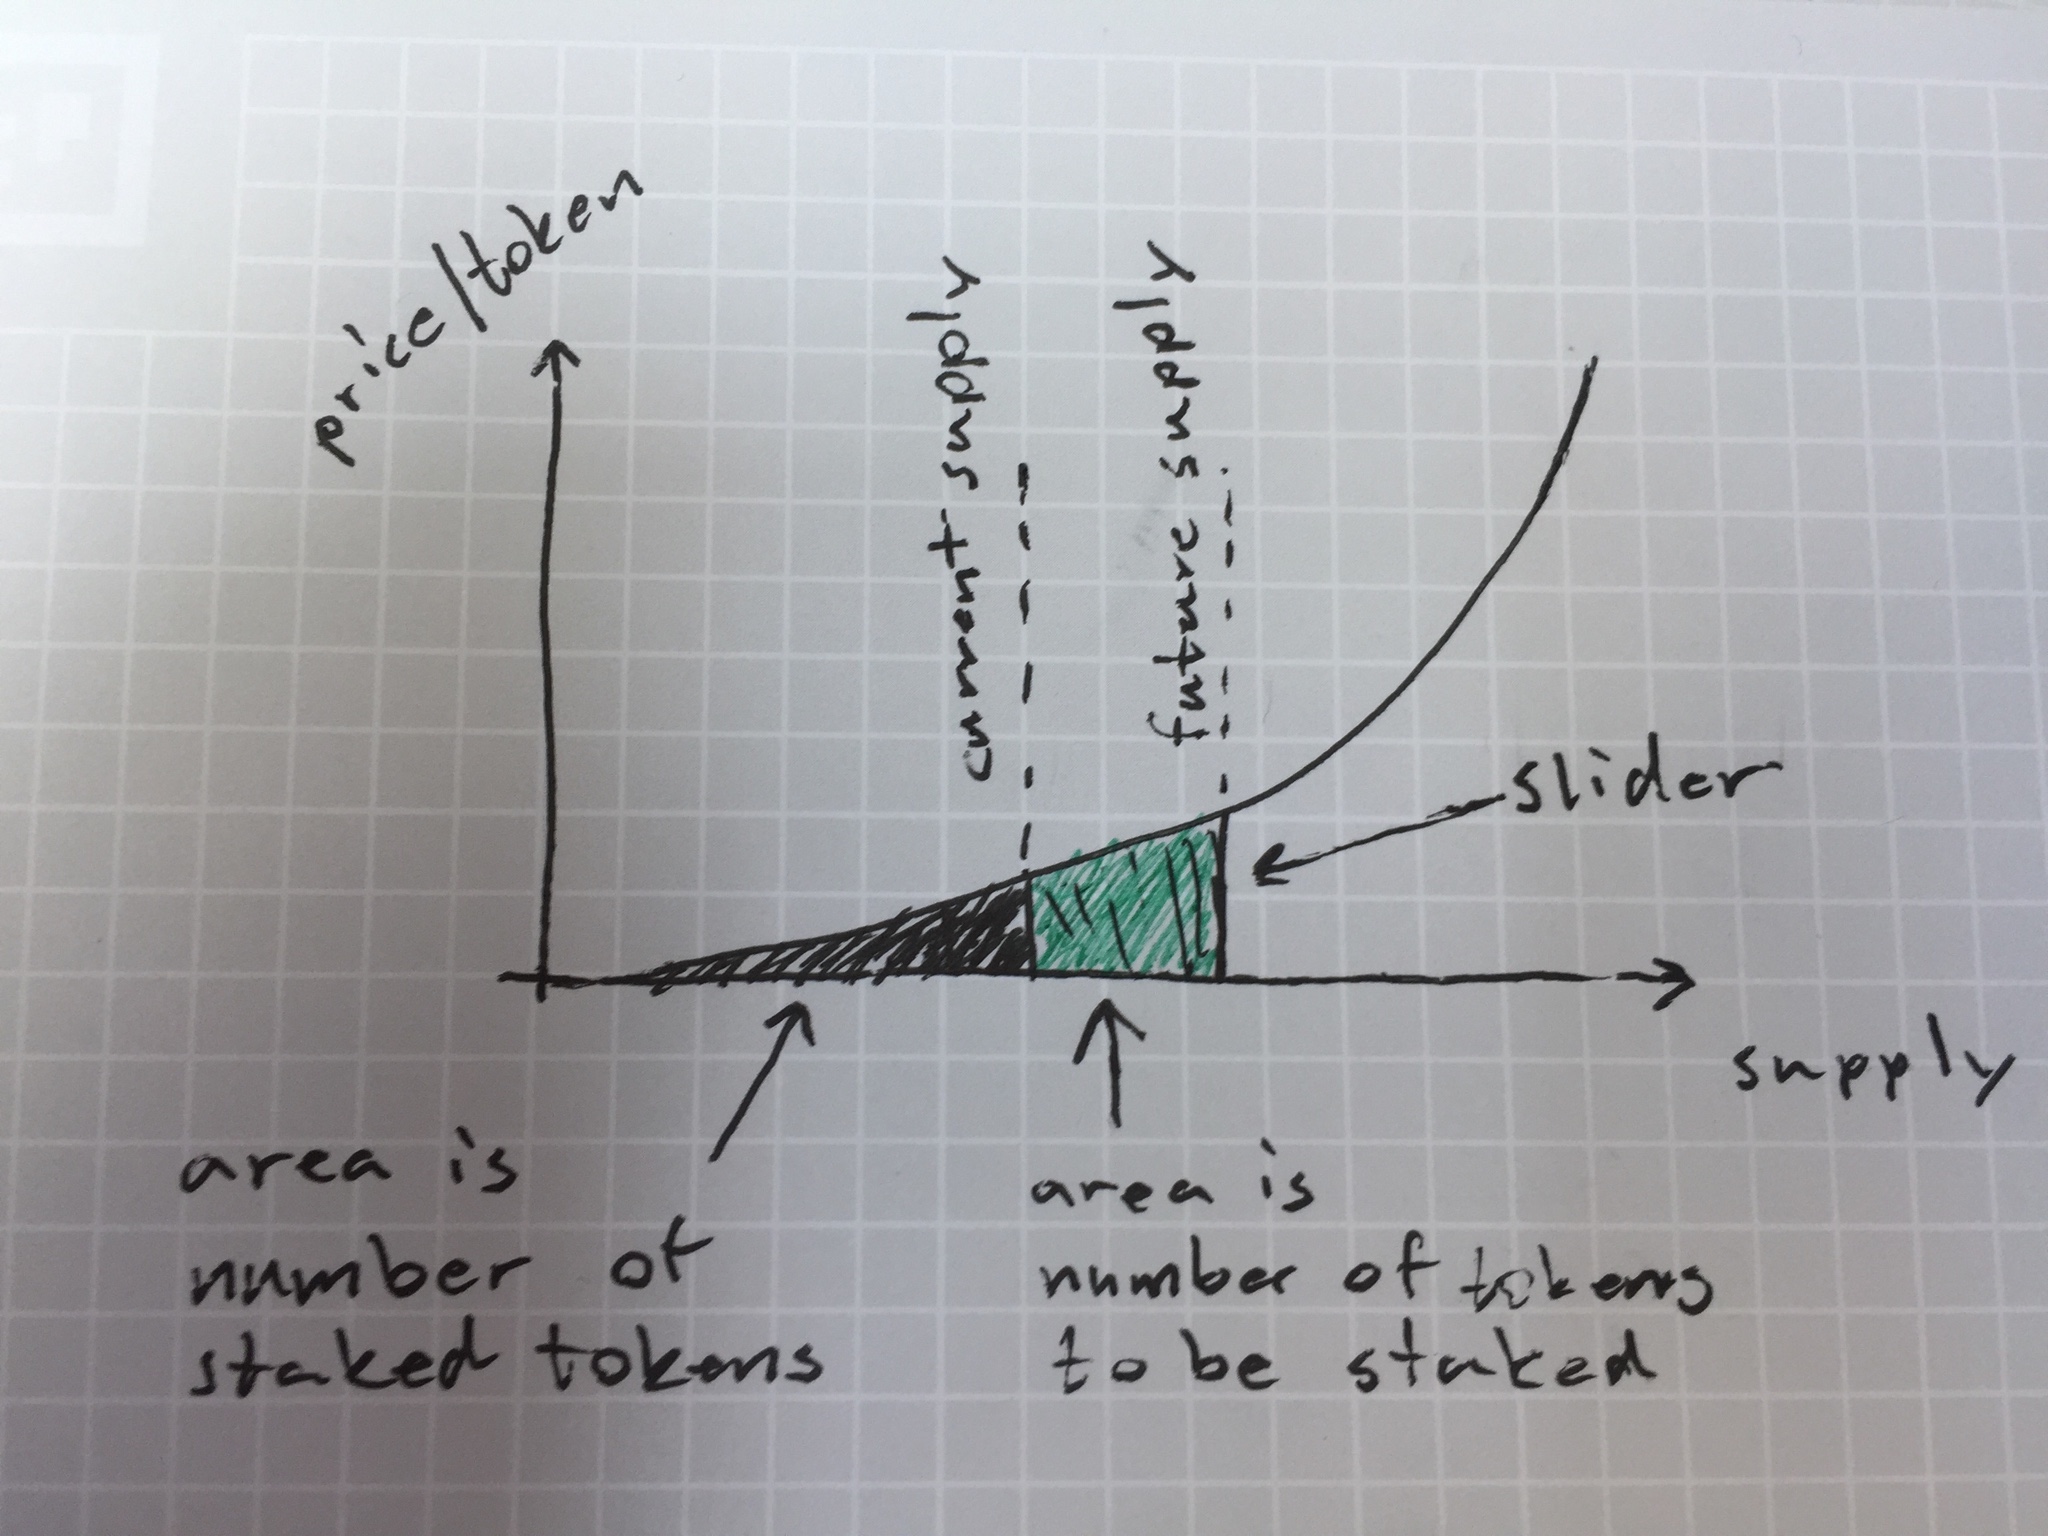 price/token
current supply
future supply
slider
supply
area is
number of
staked tokens
area is
number of tokens
to be staked